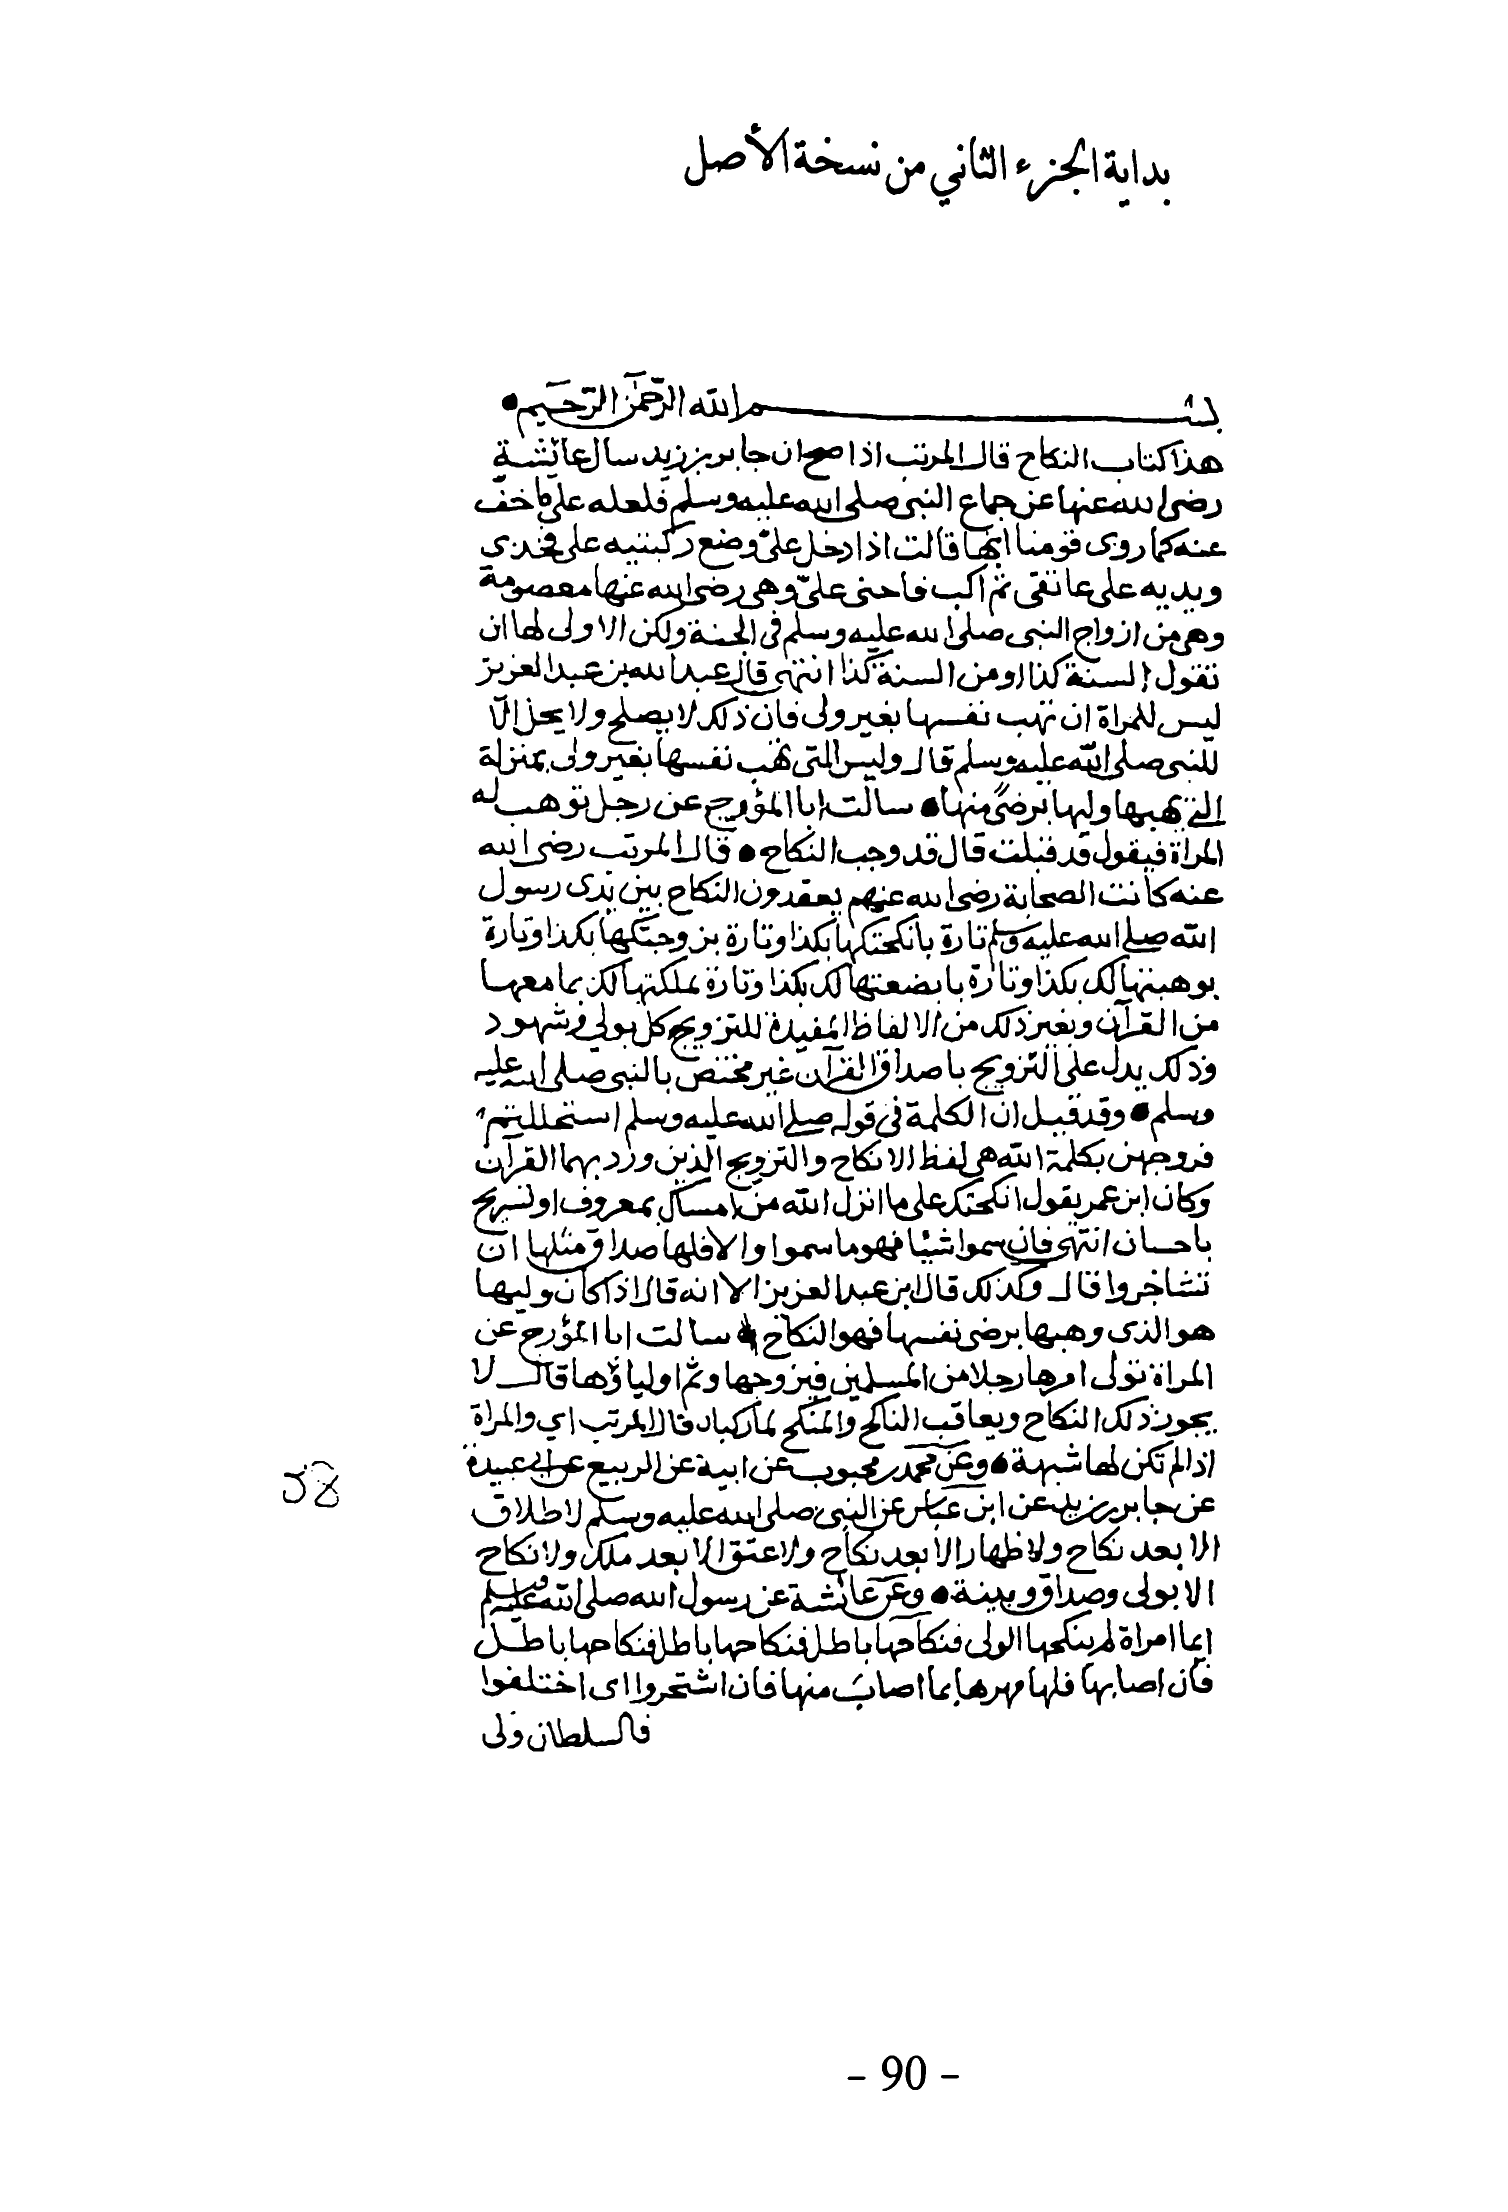 بداية الجزء الثاني من نسخة الأصل
بسم الله الرحمن الرحيم
هذا كتاب النكاح قال المرتب اذا صح ان جابر بن زيد سال عائشة
رضي الله عنها عن جماع النبي صلى الله عليه وسلم فلعله على ما خف
عنه كما روى قومنا انها قالت اذا دخل عليّ وضع ركبتيه على فخذى
ويديه على عاتقى ثم اكب فاحنى عليّ وهى رضى الله عنها معصومة
وهى من ازواج النبى صلى الله عليه وسلم فى الجنة ولكن الاولى لها ان
تقول السنة كذا او من السنة كذا انتهى قال عبد الله بن عبد العزيز
ليس للمراة ان تهب نفسها بغير ولى فان ذلك لا يصلح ولا يحل الّا
للنبى صلى الله عليه وسلم قال وليس التى تهب نفسها بغير ولى بمنزلة
التى يهبها وليها برضىً منها سالت ابا المؤرج عن رجل توهب له
المراة فيقول قد قبلت قال قد وجب النكاح قال المرتب رضى الله
عنه كانت الصحابة رضى الله عنهم يعقدون النكاح بين يدى رسول
الله صلى الله عليه وسلم تارة بانكحتكها بكذا وتارة بزوجتكها بكذا وتارة
بوهبتها لك بكذا وتارة بابضعتها لك بكذا وتارة بملكتها لك بما معها
من القرآن وبغير ذلك من الالفاظ المفيدة للتزويج كل بولي وشهود
وذلك يدل على التزويج باصداق القرآن غير مختص بالنبى صلى الله عليه
وسلم وقد قيل ان الكلمة فى قوله صلى الله عليه وسلم استحللتم
فروجهن بكلمة الله هى لفظ الانكاح والتزويج الذين ورد بهما القرآن
وكان ابن عمر يقول انكحتك على ما انزل الله من امساك بمعروف او تسريح
باحسان انتهى فان سموا شيئا فهو ما سموا والا فلها صداق مثلها ان
تشاجروا قال وكذلك قال ابن عبد العزيز الا انه قال اذا كان وليها
هو الذى وهبها برضى نفسها فهو النكاح سالت ابا المؤرج عن
المراة تولى امرها رجلا من المسلمين فيزوجها وثم اولياؤها قال لا
يجوز ذلك النكاح ويعاقب الناكح والمنكح لما ركبا قال المرتب اي والمراة
اذا لم تكن لها شبهة وعن محمد بن محبوب عن ابيه عن الربيع عن ابى عبيدة
عن جابر بن زيد عن ابن عباس عن النبى صلى الله عليه وسلم لا طلاق
الا بعد نكاح ولا ظهار الا بعد نكاح ولا عتق الا بعد ملك ولا نكاح
الا بولى وصداق وبينة وعن عائشة عن رسول الله صلى الله عليه وسلم
ايما امراة لم ينكحها الولى فنكاحها باطل فنكاحها باطل فنكاحها باطل
فان اصابها فلها مهرها بما اصاب منها فان اشتجروا اى اختلفوا
فالسلطان ولى
- 90 -